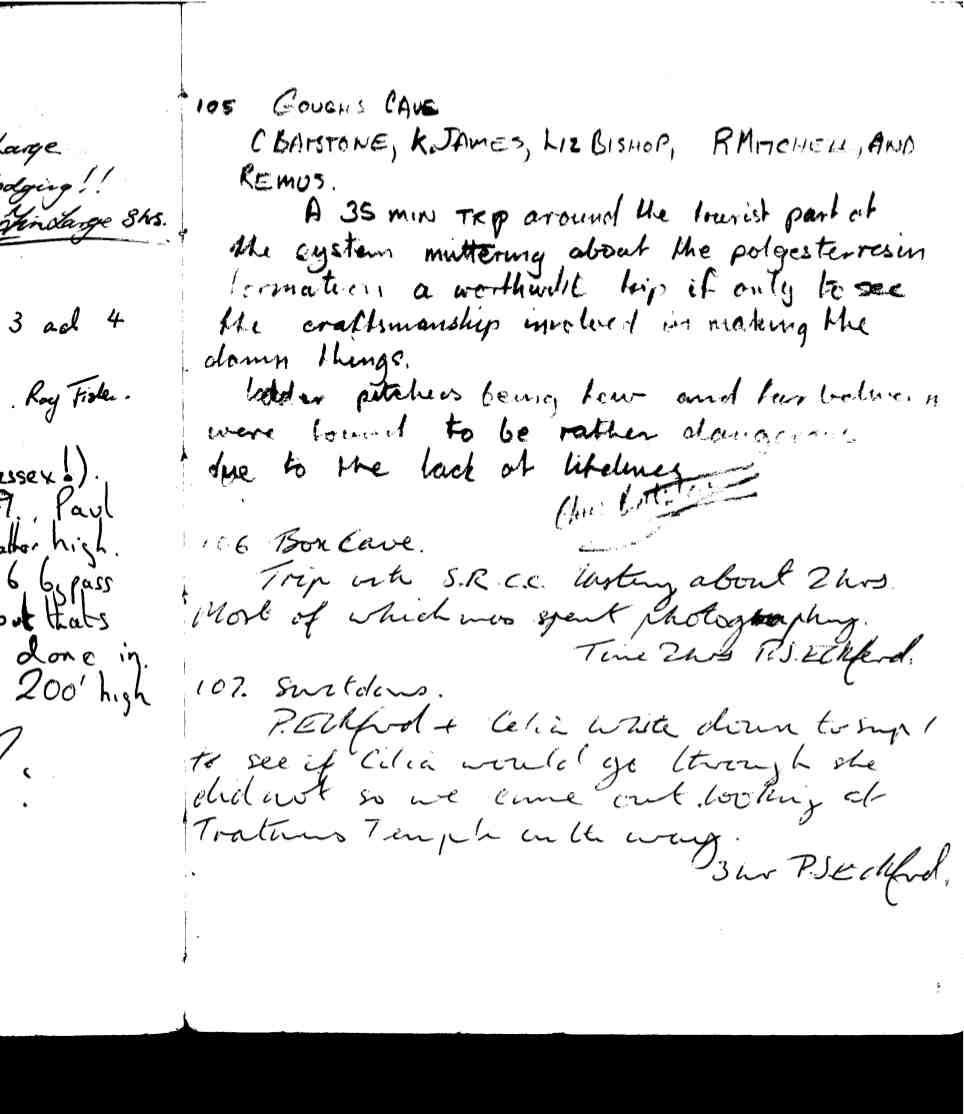 Large
odging!!
Tim Large 3hrs.
3 ad 4
. Ray Fisher.
ussex!).
Paul
high.
6 bypass
but thats
done in.
200' high
105 GOUGHS CAVE
C BATSTONE, K.JAMES, LIZ BISHOP, R MITCHELL, AND
REMUS.
A 35 MIN TRIP around the tourist part of
the system muttering about the polyesterresin
formation a worthwilt trip if only to see
the craftsmanship involved in making the
damn things.
ladder pitches being few and far between
were found to be rather dangerous
due to the lack of lifelines
Chris Batstone
106 Box Cave.
Trip with S.R.C.C. lasting about 2 hrs.
Most of which was spent photographing.
Time 2hrs P.S.Eckford.
107. Swildons.
P.Eckford + Celia White down to sump 1
to see if Cilia would go through she
did not so we came out looking at
Tratmans Temple on the way.
3hr P.S Eckford.